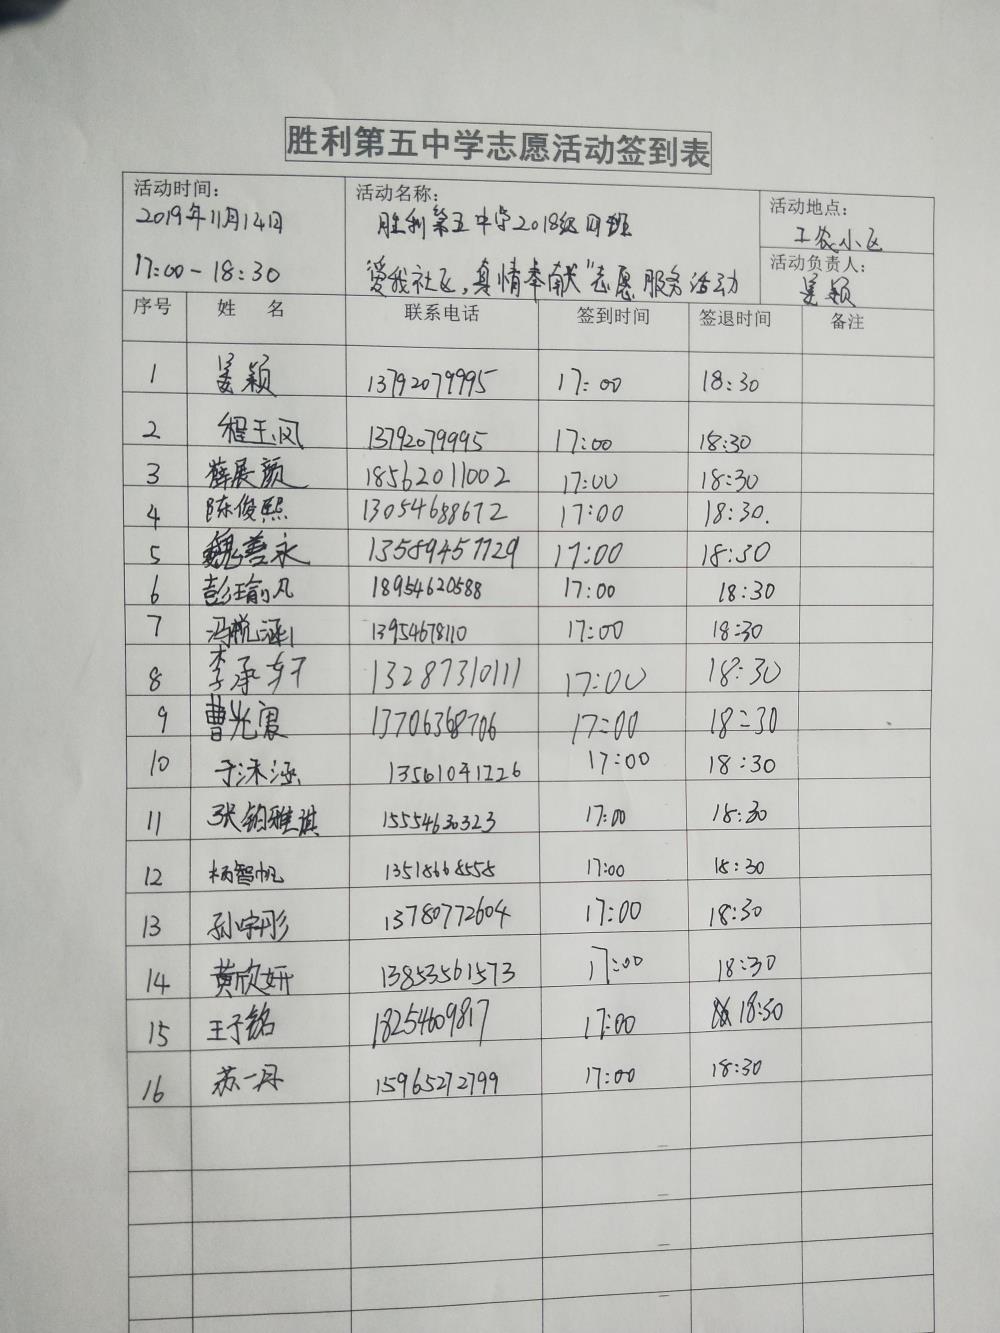 胜利第五中学志愿活动签到表
活动时间: 活动名称: 活动地点:
2019年11月14日 胜利第五中学2018级四班 工农小区
17:00-18:30 爱我社区,真情奉献"志愿服务活动 活动负责人:
姜颖
序号 姓 名 联系电话 签到时间 签退时间 备注
1 姜颖 13792079995 17:00 18:30
2 程玉凤 13792079995 17:00 18:30
3 薛展颜 18562011002 17:00 18:30
4 陈俊熙 13054688672 17:00 18:30.
5 魏善永 13589457729 17:00 18:30
6 彭瑜凡 18954620588 17:00 18:30
7 冯航涵 13954678110 17:00 18:30
8 李承轩 13287310111 17:00 18:30
9 曹光寰 13706368706 17:00 18:30
10 于沐涵 13561041226 17:00 18:30
11 张钧雅淇 15554630323 17:00 18:30
12 杨智帆 13518668558 17:00 18:30
13 孙宇彤 13780772604 17:00 18:30
14 黄欣妍 13853561573 17:00 18:30
15 王子铭 18254609817 17:00 18:30
16 苏一丹 15965272799 17:00 18:30